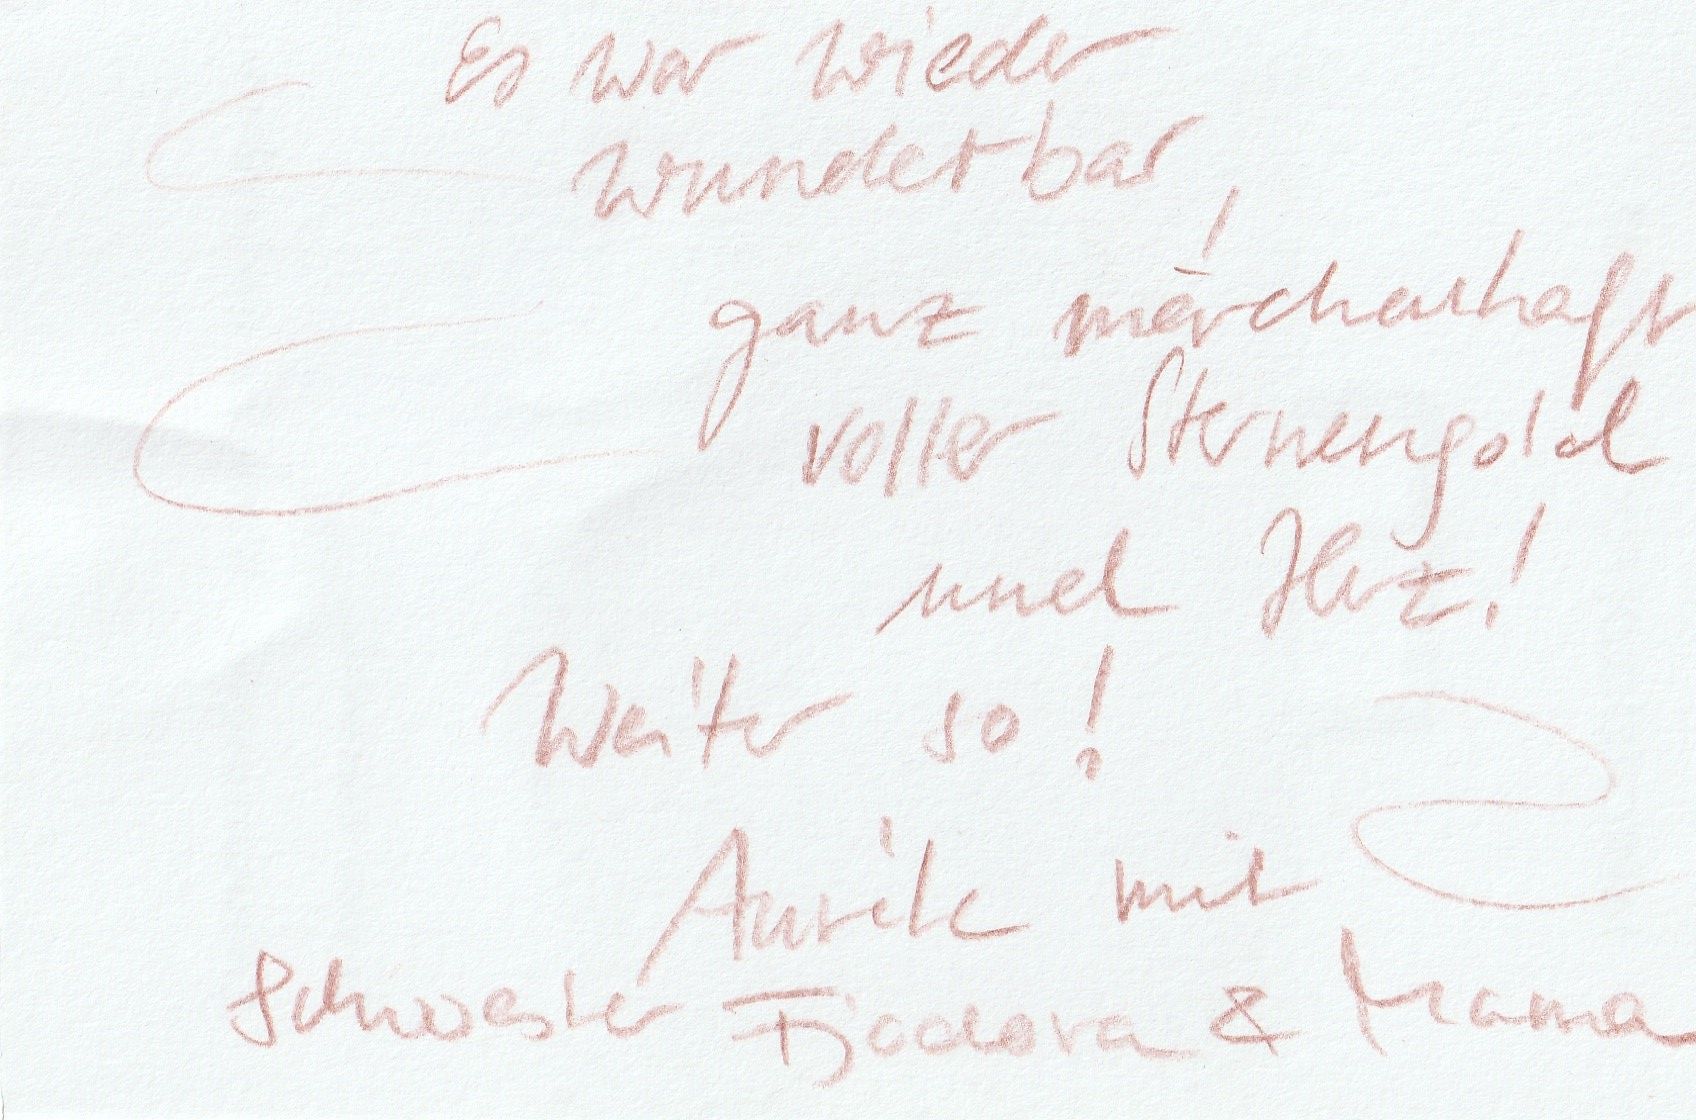 Es war wieder
wunderbar,
ganz märchenhaft
voller Sternengold
und Herz!
Weiter so!
Aurik mit
Schwester Fjodora & Mama